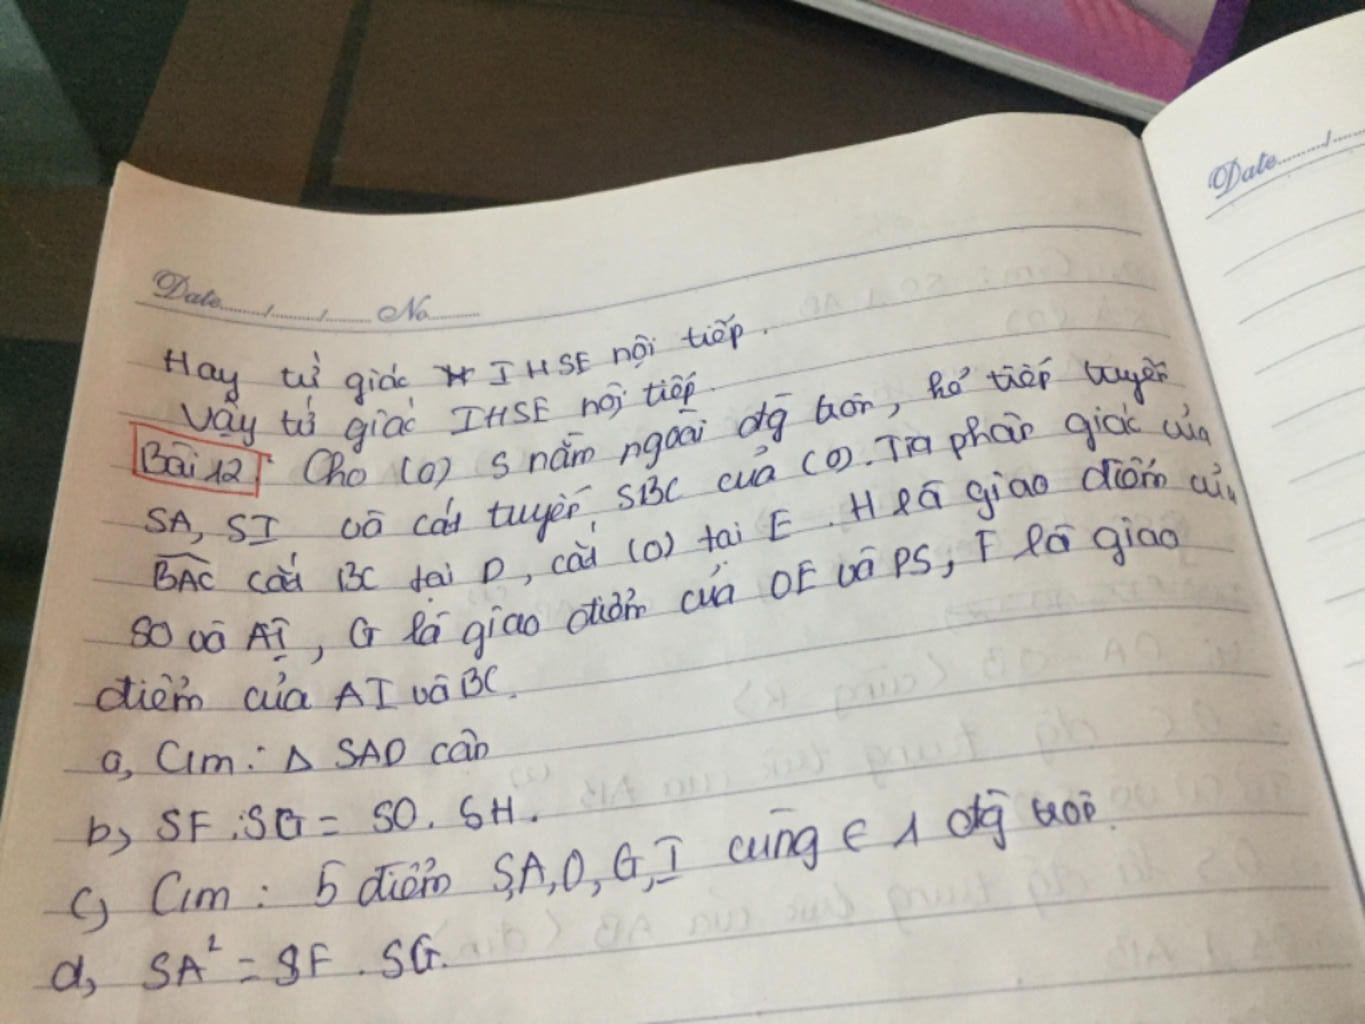 Date
Date...../...../..... No.......
Hay tứ giác IHSE nội tiếp.
Vậy tứ giác IHSE nội tiếp.
Bài 12: Cho (O) S nằm ngoài đg tròn, kẻ tiếp tuyến
SA, SI và cát tuyến SBC của (O). Tia phân giác của
BAC cắt BC tại D, cắt (O) tại E. H là giao điểm của
SO và AI, G là giao điểm của OE và DS, F là giao
điểm của AI và BC.
a, Cm: Δ SAD cân
b, SF.SG = SO.SH.
c, Cm: 5 điểm S,A,O,G,I cùng ∈ 1 đg tròn.
d, SA² = SF.SG.